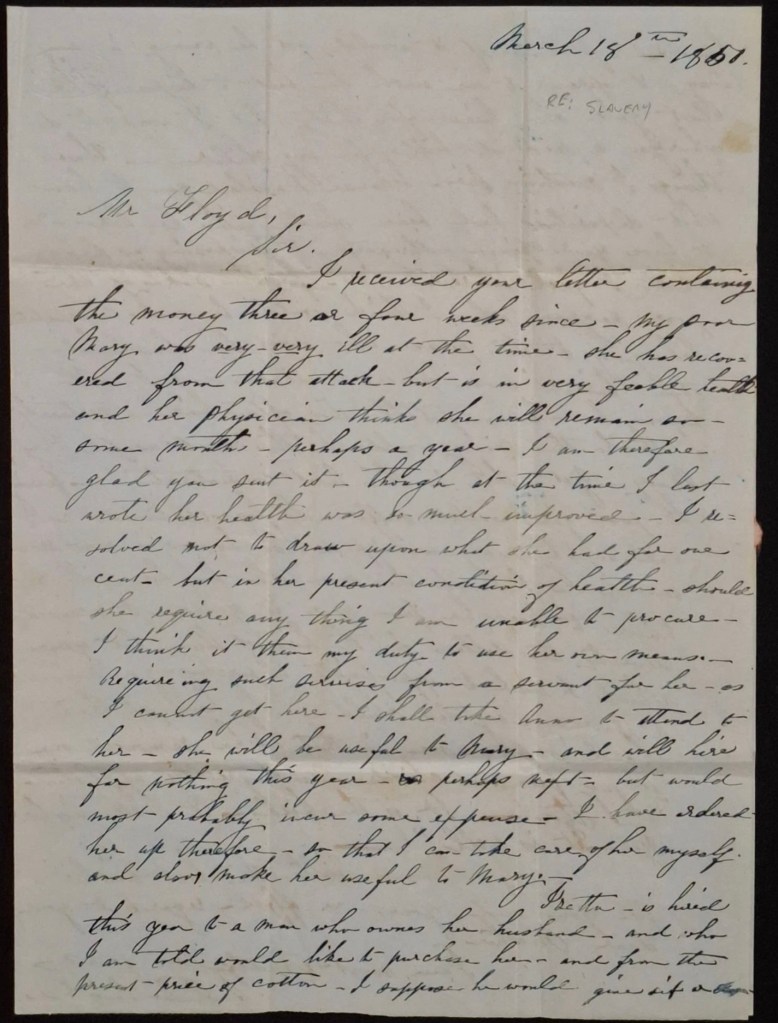 March 18th - 1851.
RE: SLAVERY
Mr Floyd,
Sir.
I received your letter containig
the money three or four weeks since - my poor
Mary was very - very ill at the time - she has recov=
ered from that attack - but is in very feable health
and her physician thinks she will remain so -
some month - perhaps a year - I am therefore
glad you sent it - though at the time I last
wrote her health was so much improved - I re=
solved not to draw upon what she had for one
cent - but in her present condition of health - should
she require any thing I am unable to procure -
I think it then my duty to use her own means -
Requireing such servises from a servant for her - as
I cannot get here - I shall take Anna to attend to
her - she will be useful to Mary - and will hire
for nothing this year - perhaps next - but would
most probably incur some expense - I have ordered
her up therefore - so that I can take care of her myself.
and also make her useful to Mary -
is hired
this year to a man who owns her husband - and who
I am told would like to purchase her - and from the
present price of cotton - I suppose he would give six